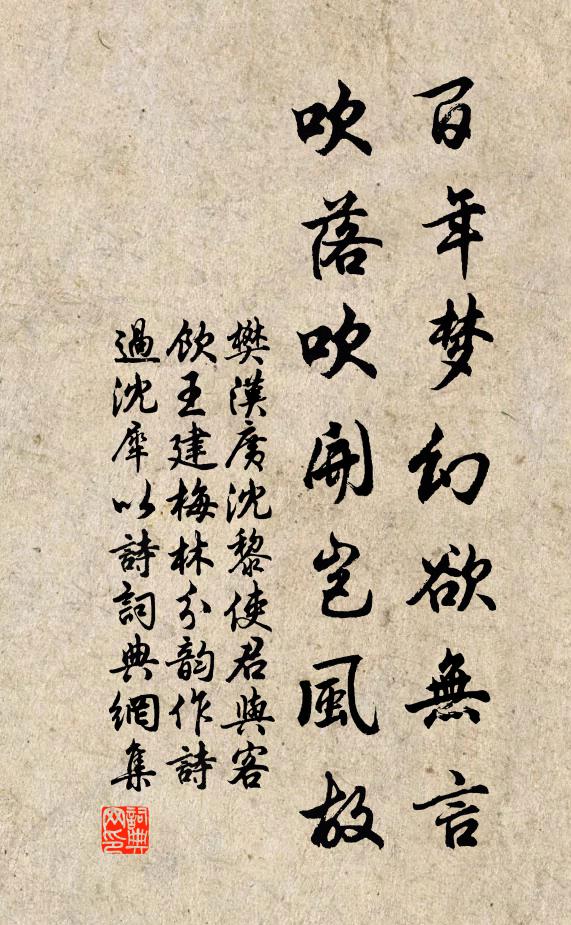 百年梦幻欲無言
吹落吹開岂風故
樊漢廣沈黎使君與客
飲王建梅林分韵作詩
過沈犀以詩詞典網集
詞典
网印